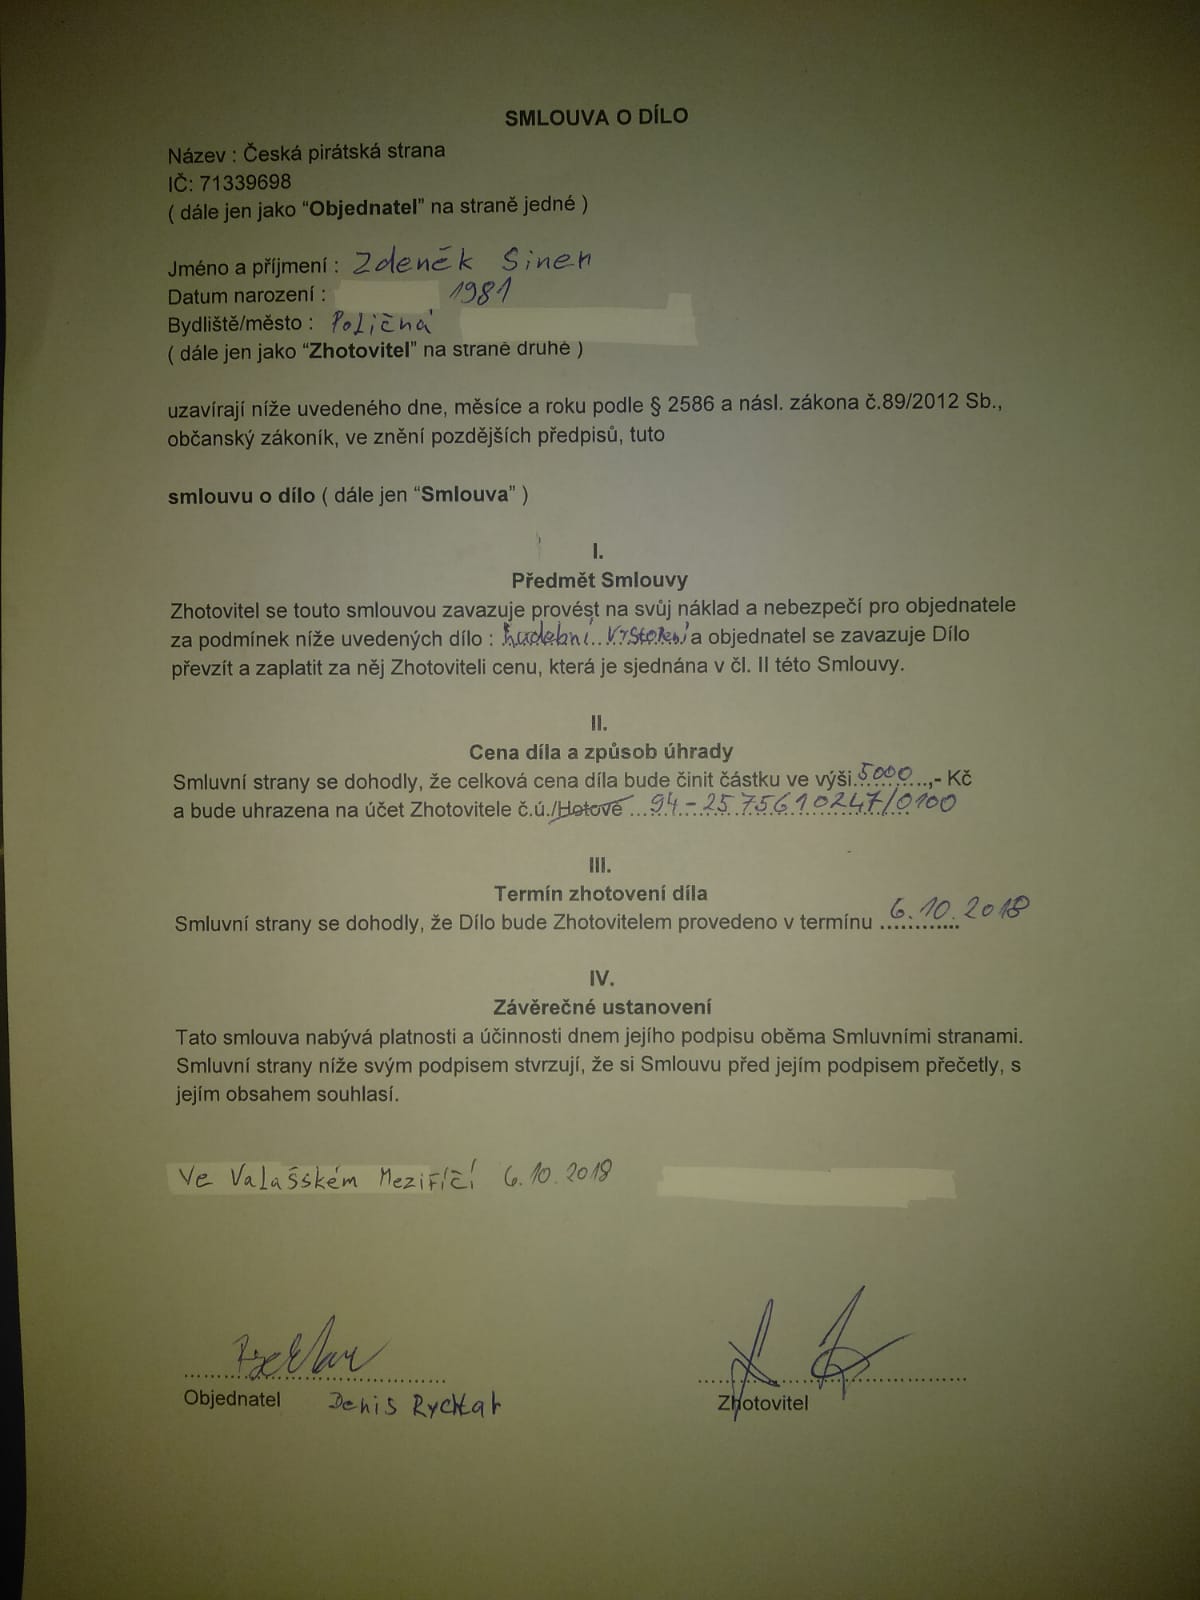 SMLOUVA O DÍLO
Název : Česká pirátská strana
IČ: 71339698
( dále jen jako “Objednatel” na straně jedné )
Jméno a příjmení : Zdeněk Siner
Datum narození : 1981
Bydliště/město : Poličná
( dále jen jako “Zhotovitel” na straně druhé )
uzavírají níže uvedeného dne, měsíce a roku podle § 2586 a násl. zákona č.89/2012 Sb.,
občanský zákoník, ve znění pozdějších předpisů, tuto
smlouvu o dílo ( dále jen “Smlouva” )
I.
Předmět Smlouvy
Zhotovitel se touto smlouvou zavazuje provést na svůj náklad a nebezpečí pro objednatele
za podmínek níže uvedených dílo : hudební vystoení a objednatel se zavazuje Dílo
převzít a zaplatit za něj Zhotoviteli cenu, která je sjednána v čl. II této Smlouvy.
II.
Cena díla a způsob úhrady
Smluvní strany se dohodly, že celková cena díla bude činit částku ve výši 5000..,- Kč
a bude uhrazena na účet Zhotovitele č.ú./Hotově ...94-2575610247/0100
III.
Termín zhotovení díla
Smluvní strany se dohodly, že Dílo bude Zhotovitelem provedeno v termínu 6.10.2018
IV.
Závěrečné ustanovení
Tato smlouva nabývá platnosti a účinnosti dnem jejího podpisu oběma Smluvními stranami.
Smluvní strany níže svým podpisem stvrzují, že si Smlouvu před jejím podpisem přečetly, s
jejím obsahem souhlasí.
Ve Valašském Meziříčí 6.10.2018
Objednatel Denis Rychtar
Zhotovitel